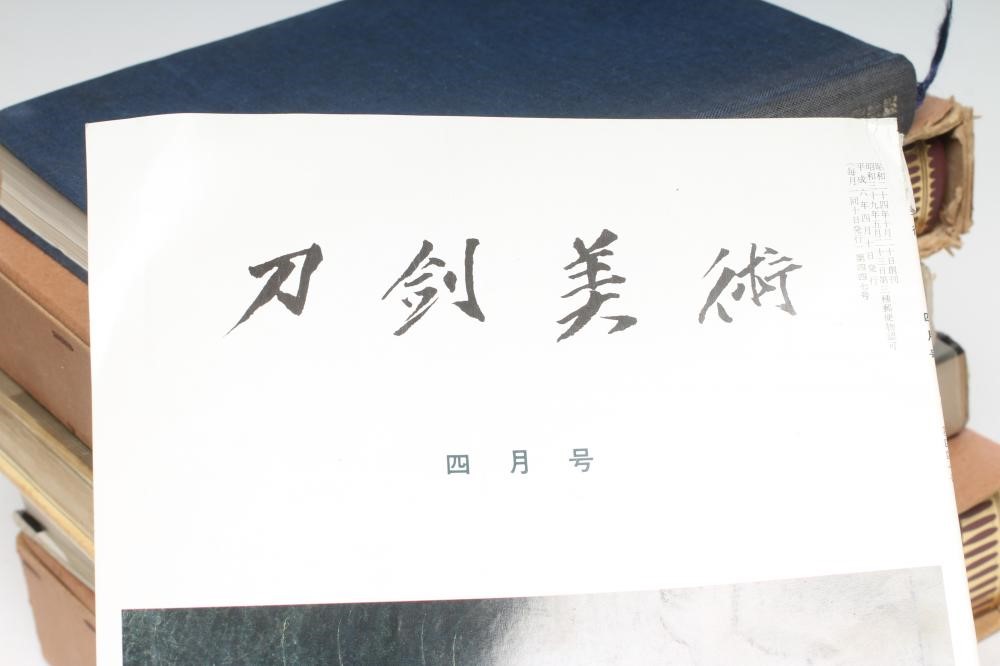 刀剣美術
四月号
昭和二十四年十月二十日創刊
昭和三十九年五月二十三日第三種郵便物認可
平成六年四月十日発行
(毎月一回十日発行)第四四七号
四月号